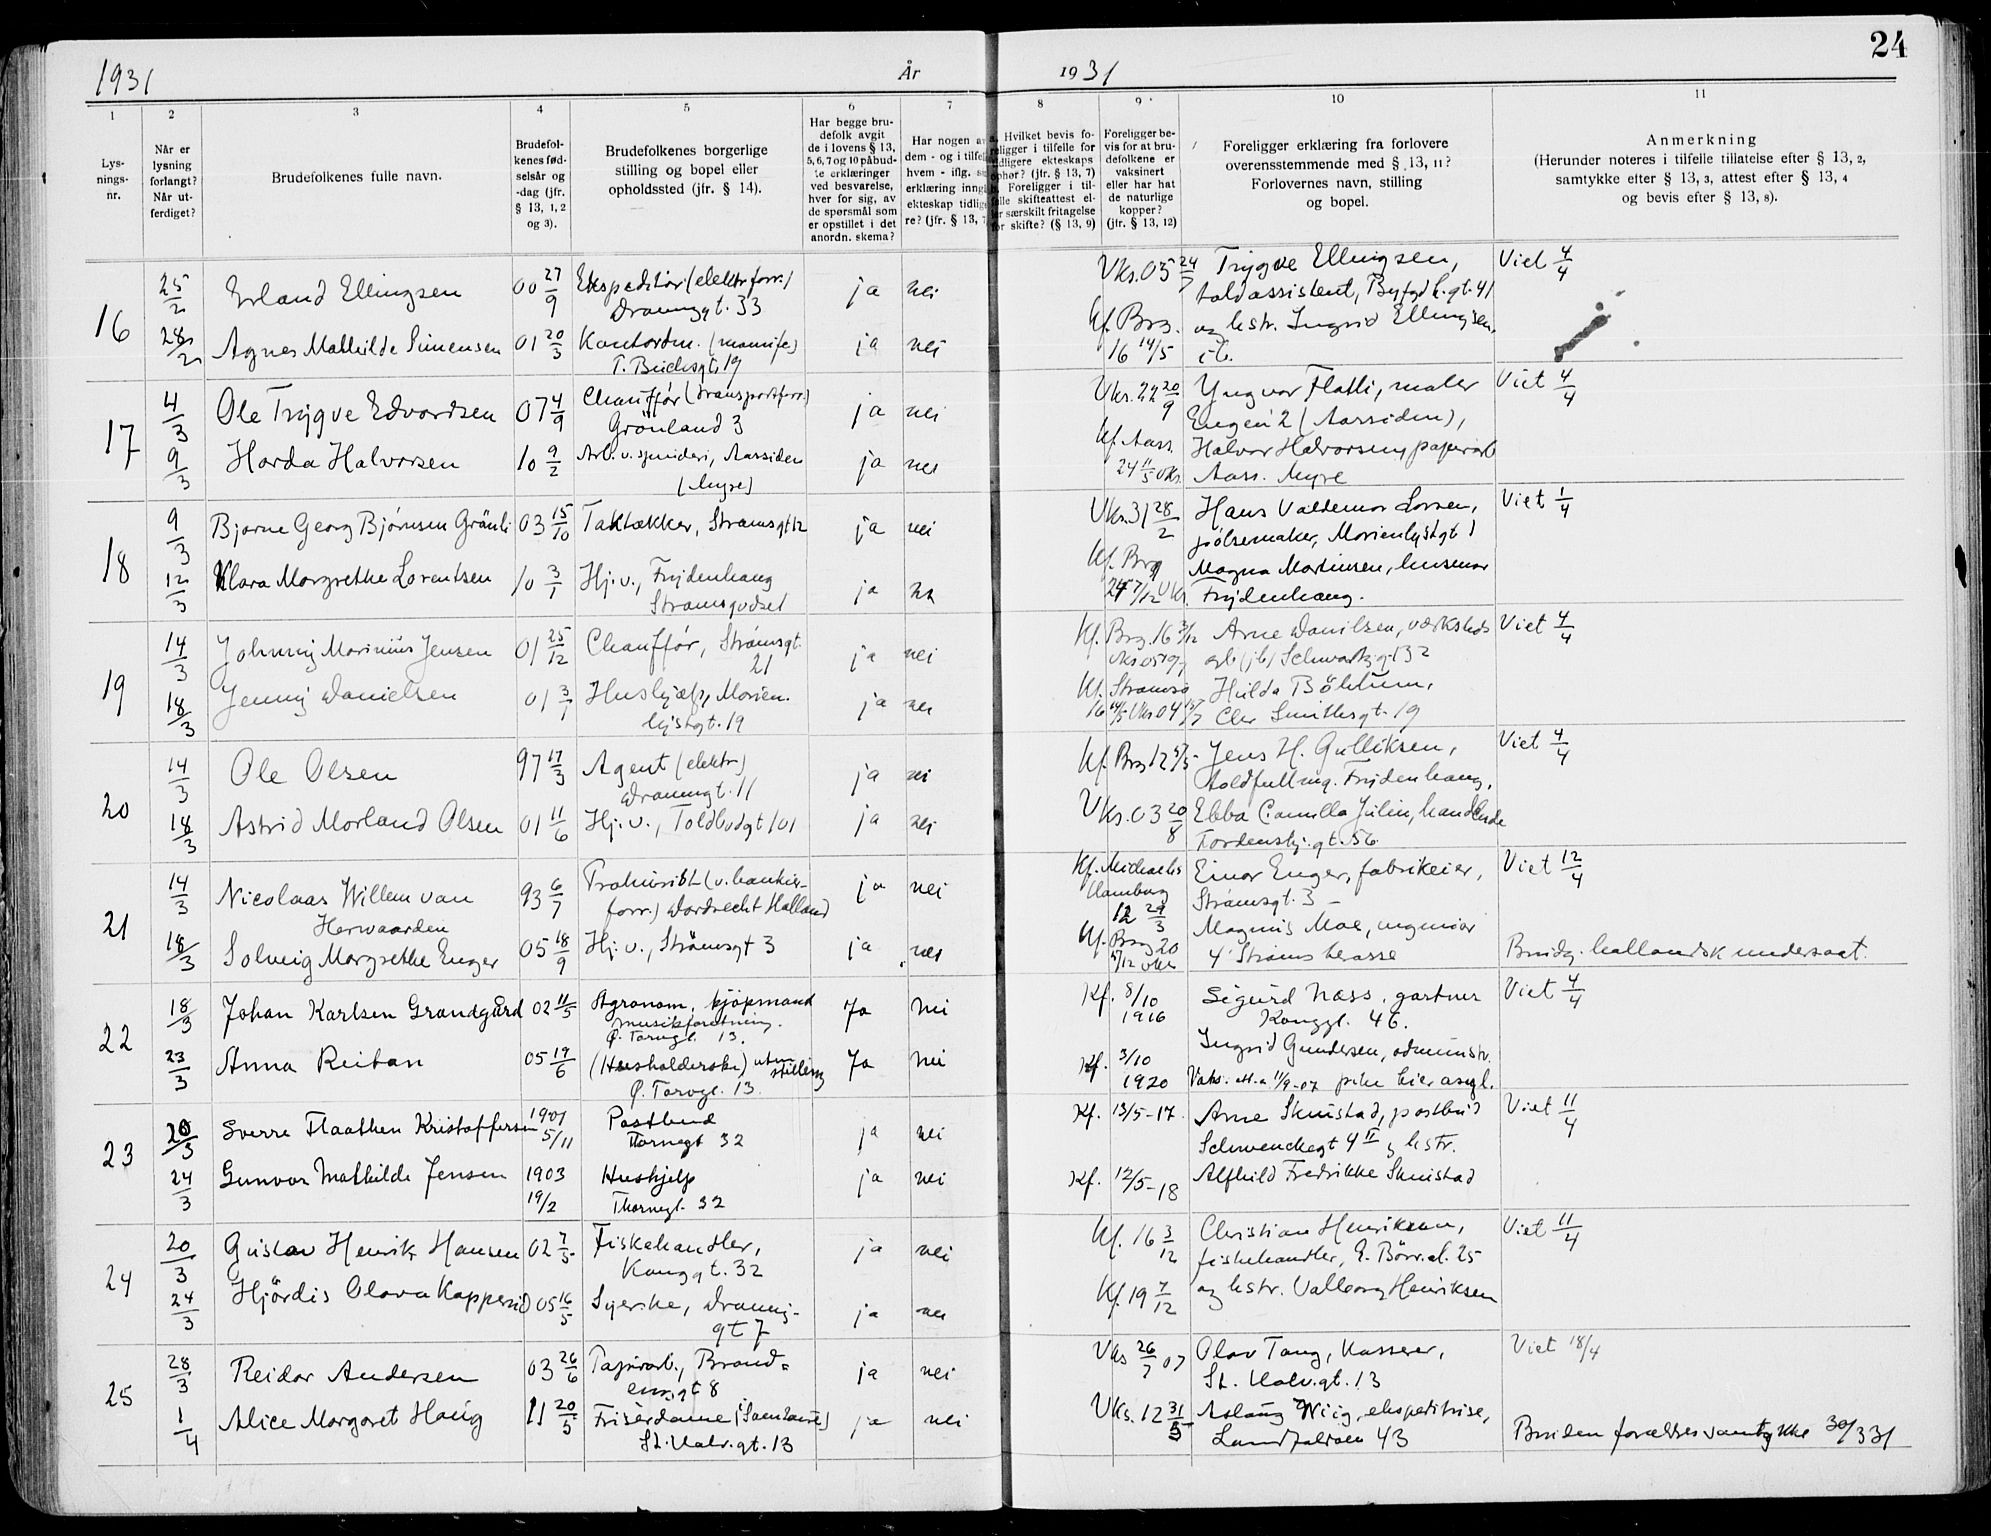 24
1931
År
1931
1
2
3
4
5
6
7
8
9
10
11
Lys-
nings-
nr.
Når er
lysning
forlangt?
Når ut-
ferdiget?
Brudefolkenes fulle navn.
Brudefol-
kenes fød-
selsår og
-dag (jfr.
§ 13, 1, 2
og 3).
Brudefolkenes borgerlige
stilling og bopel eller
opholdssted (jfr. § 14).
Har begge bru-
defolk avgit
de i lovens § 13,
5, 6, 7 og 10 påbud-
te erklæringer
ved besvarelse,
hver for sig, av
de spørsmål som
er opstillet i det
anordn. skema?
Har nogen av
dem - og i tilfelle
hvem - iflg.
erklæring inngått
ekteskap tidlige-
re? (jfr. § 13,
Hvilket bevis fo-
religger i tilfelle for
tidligere ekteskaps
ophør? (jfr. § 13, 7)
Foreligger i til-
felle skifteattest el-
ler særskilt fritagelse
for skifte? (§ 13, 9)
Foreligger be-
vis for at bru-
defolkene er
vaksinert
eller har hat
de naturlige
kopper?
(jfr. § 13, 12)
Foreligger erklæring fra forlovere
overensstemmende med § 13, 11?
Forlovernes navn, stilling
og bopel.
Anmerkning
(Herunder noteres i tilfelle tillatelse efter § 13, 2,
samtykke efter § 13, 3, attest efter § 13, 4
og bevis efter § 13, 8).
16
25/2 Erland Ellingsen 00 27/9 Ekspeditør (elektr. forr.) ja nei Vks. 05 24/7 Trygve Ellingsen, Viet 4/4
Dramsgt. 33 toldassistent, Bygdh. gt. 41
28/2 Agnes Mathilde Simensen 01 20/3 Kontordm. (manufg) ja nei Kf. Brg. og hstr. Ingrid Ellingsen
T. Buchsgt. 19 16 14/5 ib.
17
4/3 Ole Trygve Edvardsen 07 4/9 Chauffør (transportforr.) ja nei Vks. 22 20/9 Yngvar Flatli, maler Viet 4/4
Grönland 3 Engen 2 (Aassiden),
9/3 Horda Halvorsen 10 9/2 Arb. v. spinderi, Aassiden ja nei Kf. Aass. Halvor Halvorsen, papirarb
(Myre) 24 11/5 Vks. Aass. Myre
18
9/3 Bjarne Georg Bjørnsen Grönli 03 15/10 Taktækker, Stramsgt 12 ja nei Vks. 31 28/2 Hans Valdemar Larsen, Viet 1/4
pölsemaker, Marienlystgt 1
12/3 Klara Margrethe Lorentsen 10 3/1 Hj. v., Frydenhaug ja nei Kf. Brg Magna Martinsen, husmor
Stramsgodset 24 7/12 Vks. Frydenhaug.
19
14/3 Johnny Marinius Jensen 01 25/12 Chauffør, Strömsgt. ja nei Kf. Brg. 16 3/12 Arne Danilsen, værksteds Viet 4/4
21 Vks 05 arb (jb) Schwartzgt 32
18/3 Jenny Danielsen 01 3/1 Hushjælp, Marien- ja nei Kf. Stramsg Hilda Böhtum,
lystgt. 19 16 14/5 Vks 04 Chr Smithsgt. 19
20
14/3 Ole Olsen 97 17/3 Agent (elektr) ja nei Kf. Brg 12 5/5 Jens H. Gulliksen, Viet 4/4
Dramsgt. 11 toldfullm. Frydenhaug,
18/3 Astrid Morland Olsen 01 11/6 Hj. v., Toldbodgt 101 ja nei Vks. 03 20/8 Ebba Camilla Julin, handlende
Tordenskj. gt. 56
21
14/3 Nicolaas Willem van 93 6/7 Prokurist (v. bankier- ja nei Kf. Michaelis Einar Enger, fabrikeier, Viet 12/4
Herwaarden forr.) Dordrecht Holland Hamburg Strömsgt. 3 -
12 29/3
18/3 Solveig Margrethe Enger 05 18/9 Hj. v., Strömsgt 3 ja nei Kf. Brg 20 Magnus Moe, ingeniør
5/12 Vks 4 Strøms terasse Brudg. hollandsk undersaat.
22
18/3 Johan Karlsen Grandgård 02 11/5 Agronom, kjøpmand Ja Nei Kf. 8/10 Sigurd Næss, gartner Viet 4/4
musikforretning. 1916 Konggt. 46.
Ø. Torvgt. 13.
23/3 Anna Reitan 05 19/6 (Husholderske) uten stilling Ja Nei Kf. 3/10 Ingrid Gundersen, administr.
Ø. Torvgt. 13. 1920 Vaks. att. a 11/9-07
23
20/3 Sverre Flaathen Kristoffersen 1901 5/11 Postbud ja nei Kf. 13/5-17. Arne Skuistad, postbud Viet 11/4
Thornegt 32 Schwenckegt 4 II og hstr.
24/3 Gunvor Mathilde Jensen 1903 19/2 Hushjelp ja nei Kf. 12/5-18 Alfhild Fredrikke Skuistad
Thornegt. 32
24
20/3 Gustav Henrik Hansen 02 7/5 Fiskehandler, ja nei Kf. 16 3/12 Christian Henriksen, Viet 11/4
Konggt. 32 fiskehandler, E. Börresl. 25
24/3 Hjördis Olava Kopperud 05 16/5 Syerske, Dramms- ja nei Kf. 19 7/12 og hstr. Valborg Henriksen
gt 7
25
28/3 Reidar Andersen 03 26/6 Papirarb., Brand- ja nei Vks 26/7 07 Olav Tang, Kasserer, Viet 18/4
engt 8 St. Halv. gt. 13
1/4 Alice Margaret Haug 11 20/5 Frisèrdame ja nei Vks. 12 31/5 Aslaug Wiig, ekspeditrise,
St. Halv. gt. 13 Landfalløen 43 Bruden forældres samtykke 30/3 31